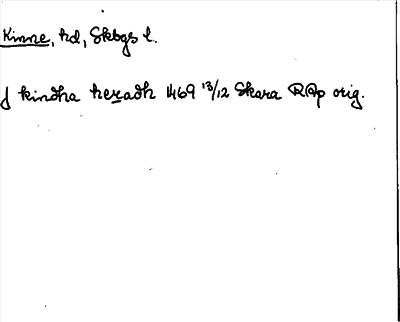 Kinne, hd, Skbgs l.
J kindha heradh 1469 13/12 Skara RAp orig.